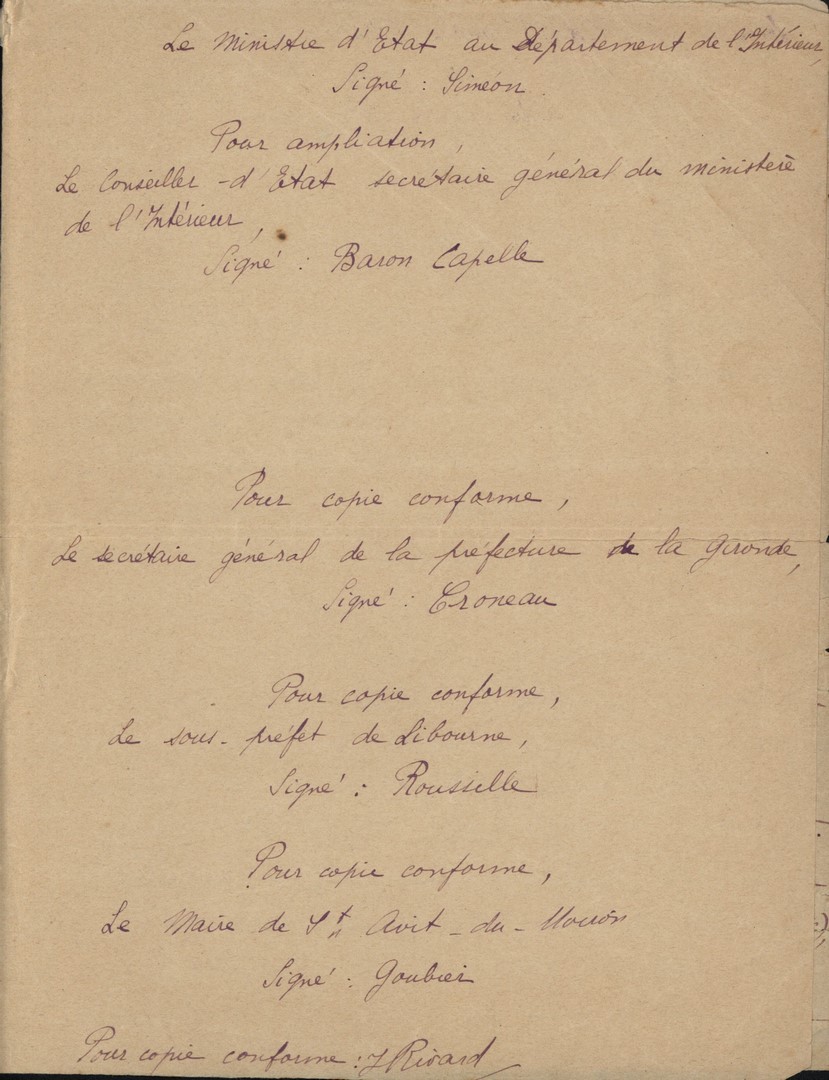 Le Ministre d'Etat au Département de l'Intérieur,
Signé : Siméon.
Pour ampliation,
Le Conseiller-d'Etat secrétaire général du ministère
de l'Intérieur,
Signé : Baron Capelle
Pour copie conforme,
Le secrétaire général de la préfecture de la Gironde,
Signé : Croneau
Pour copie conforme,
Le sous-préfet de Libourne,
Signé : Rousselle
Pour copie conforme,
Le Maire de St Avit-du-Moiron
Signé : Goubier
Pour copie conforme : J Rivard